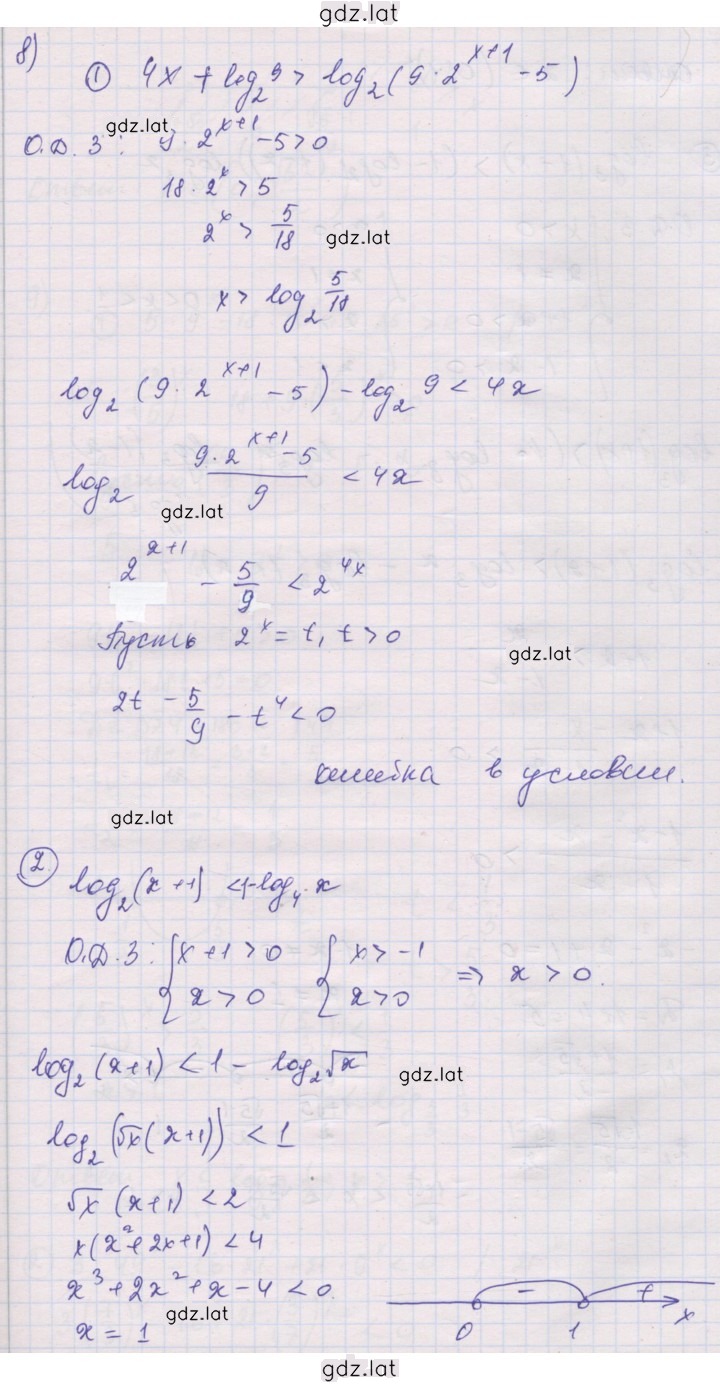 gdz.lat
8)
① 4x + log₂9 > log₂(9·2^(x+1) - 5)
gdz.lat
О.Д.З: 9·2^(x+1) - 5 > 0
18·2^x > 5
2^x > 5/18
gdz.lat
x > log₂ 5/18
log₂(9·2^(x+1) - 5) - log₂9 < 4x
log₂ (9·2^(x+1) - 5)/9 < 4x
gdz.lat
2^(x+1) - 5/9 < 2^(4x)
Пусть 2^x = t, t > 0
gdz.lat
2t - 5/9 - t⁴ < 0
ошибка в условии.
gdz.lat
②
log₂(x+1) < 1-log₄ x
О.Д.З: { x+1 > 0 { x > -1
x > 0 x > 0 ⇒ x > 0.
log₂(x+1) < 1 - log₂√x
gdz.lat
log₂(√x(x+1)) < 1
√x (x+1) < 2
x(x²+2x+1) < 4
x³+2x²+x-4 < 0
gdz.lat
x = 1
- +
0 1 x
gdz.lat